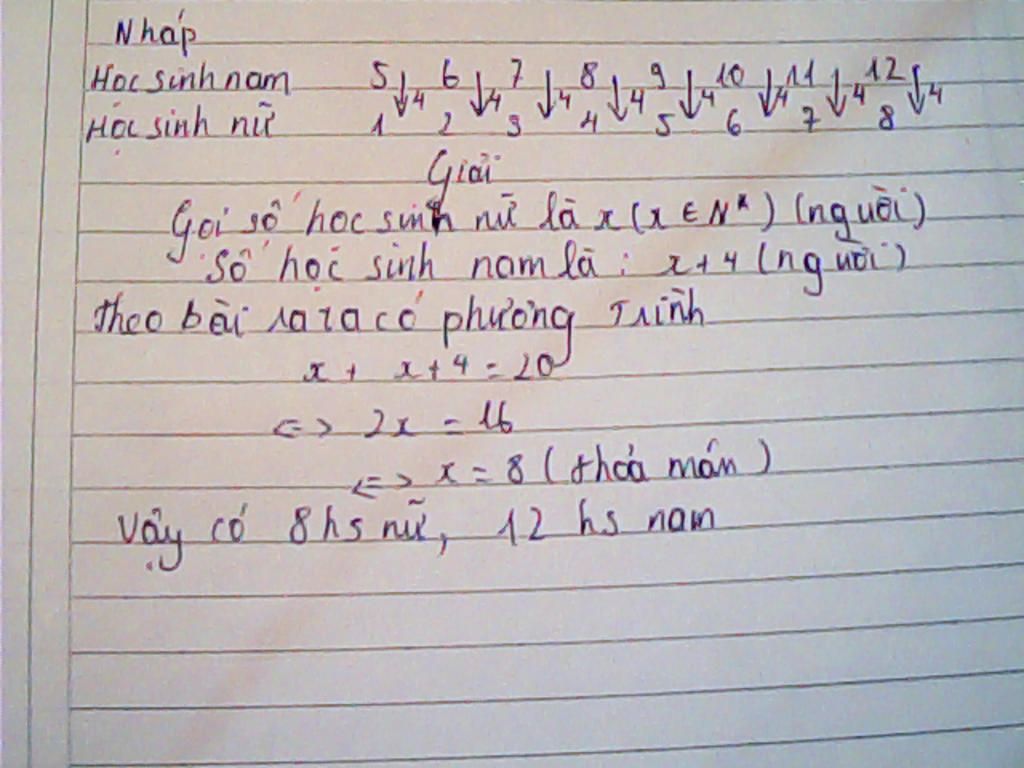 Nháp
Học sinh nam 5 ↓4 6 ↓4 7 ↓4 8 ↓4 9 ↓4 10 ↓4 11 ↓4 12 ↓4
Học sinh nữ 1 2 3 4 5 6 7 8
Giải
Gọi số học sinh nữ là x (x ∈ N*) (người)
Số học sinh nam là : x+4 (người)
Theo bài ra ta có phương trình
x + x+4 = 20
<=> 2x = 16
<=> x = 8 (thoả mãn)
Vậy có 8 hs nữ, 12 hs nam